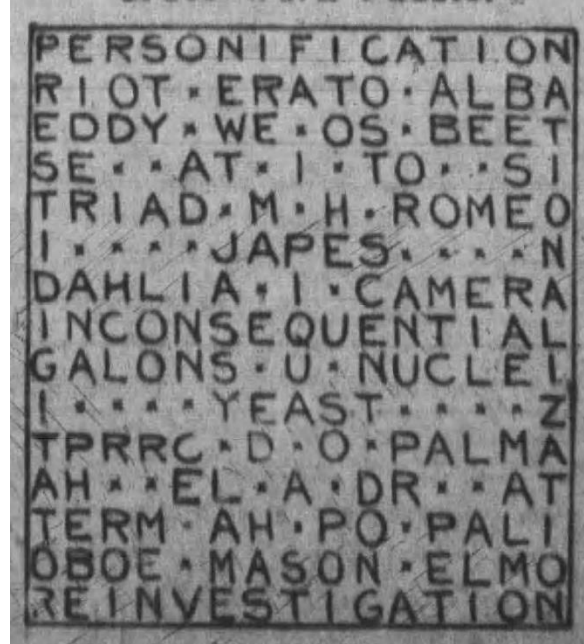 PERSONIFICATION
RIOT*ERATO*ALBA
EDDY*WE*OS*BEET
SE**AT*I*TO**SI
TRIAD*M*H*ROMEO
I****JAPES****N
DAHLIA*I*CAMERA
INCONSEQUENTIAL
GALONS*U*NUCLEI
I****YEAST****Z
TPRRC*D*O*PALMA
AH**EL*A*DR**AT
TERM*AH*PO*PALI
OBOE*MASON*ELMO
REINVESTIGATION